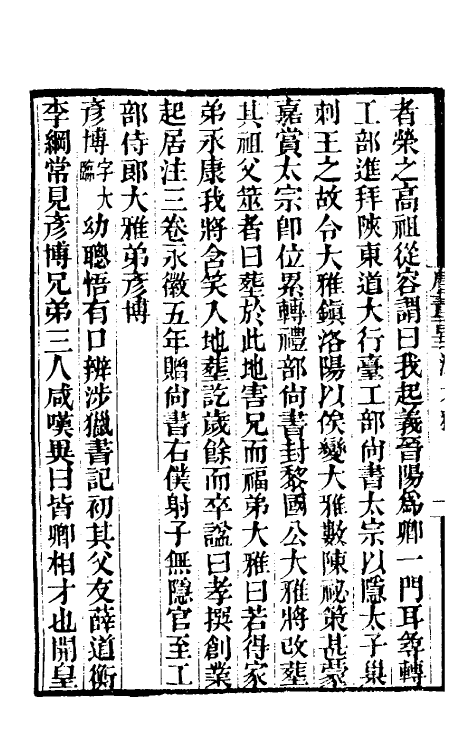 者榮之高祖從容謂曰我起義晉陽爲卿一門耳尋轉
工部進拜陝東道大行臺工部尚書太宗以隱太子巢
刺王之故令大雅鎮洛陽以俟變大雅數陳祕策甚蒙
嘉賞太宗卽位累轉禮部尚書封黎國公大雅將改葬
其祖父筮者曰葬於此地害兄而福弟大雅曰若得家
弟永康我將含笑入地葬訖歲餘而卒諡曰孝撰創業
起居注三卷永徽五年贈尚書右僕射子無隱官至工
部侍郎大雅弟彥博
彥博字大臨幼聰悟有口辨涉獵書記初其父友薛道衡
李綱常見彥博兄弟三人咸嘆異曰皆卿相才也開皇